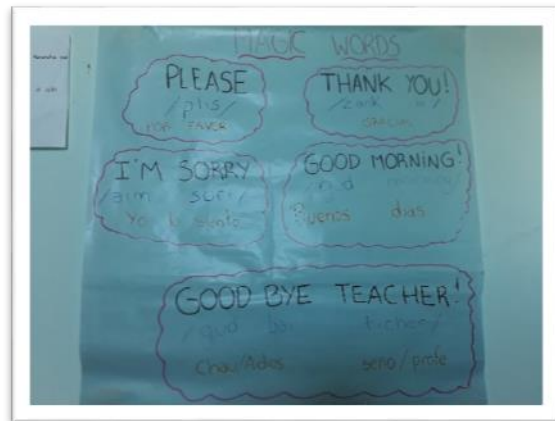 MAGIC WORDS
PLEASE
/plis/
POR FAVOR
THANK YOU!
GRACIAS
I'M SORRY
/aim sori/
Yo lo siento
GOOD MORNING!
Buenos dias
GOOD BYE TEACHER!
/gud bai ticher/
Chau/Adios seño/profe